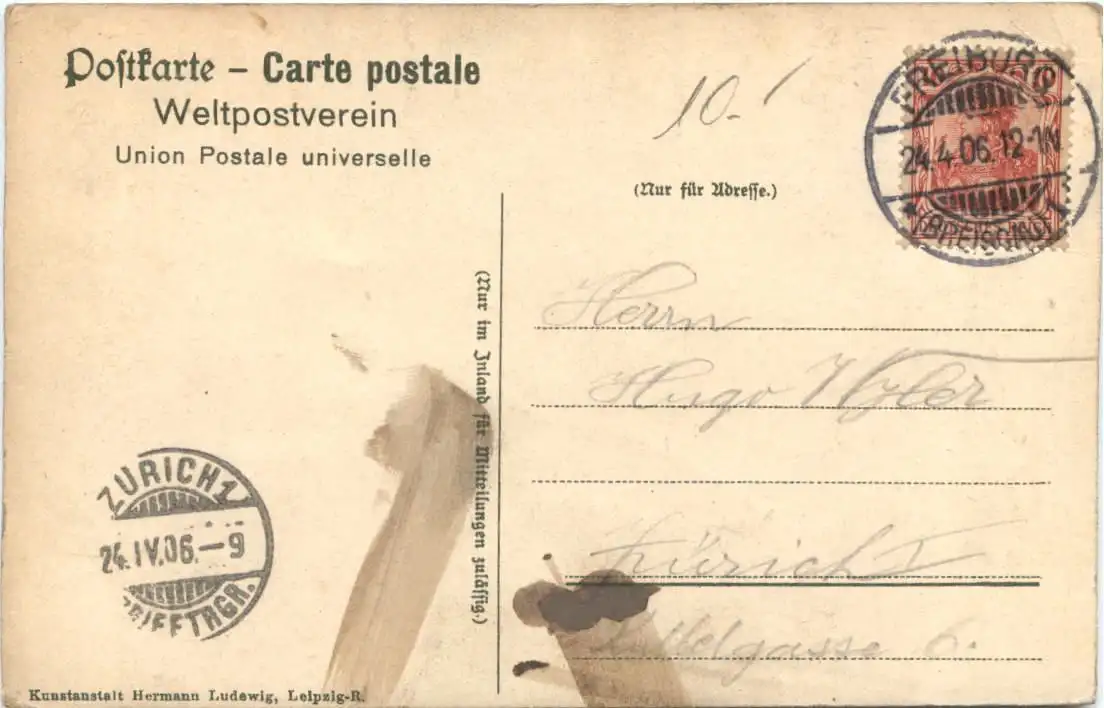 Postkarte – Carte postale
Weltpostverein
Union Postale universelle
10.-
(Nur für Adresse.)
FREIBURG
24.4.06.12-1N.
(BREISGAU) 1
(Nur im Inland für Mitteilungen zulässig.)
Herrn
Hugo
Zürich I
6.
ZÜRICH 1
24.IV.06.–9
BRIEFTRGR.
Kunstanstalt Hermann Ludewig, Leipzig-R.